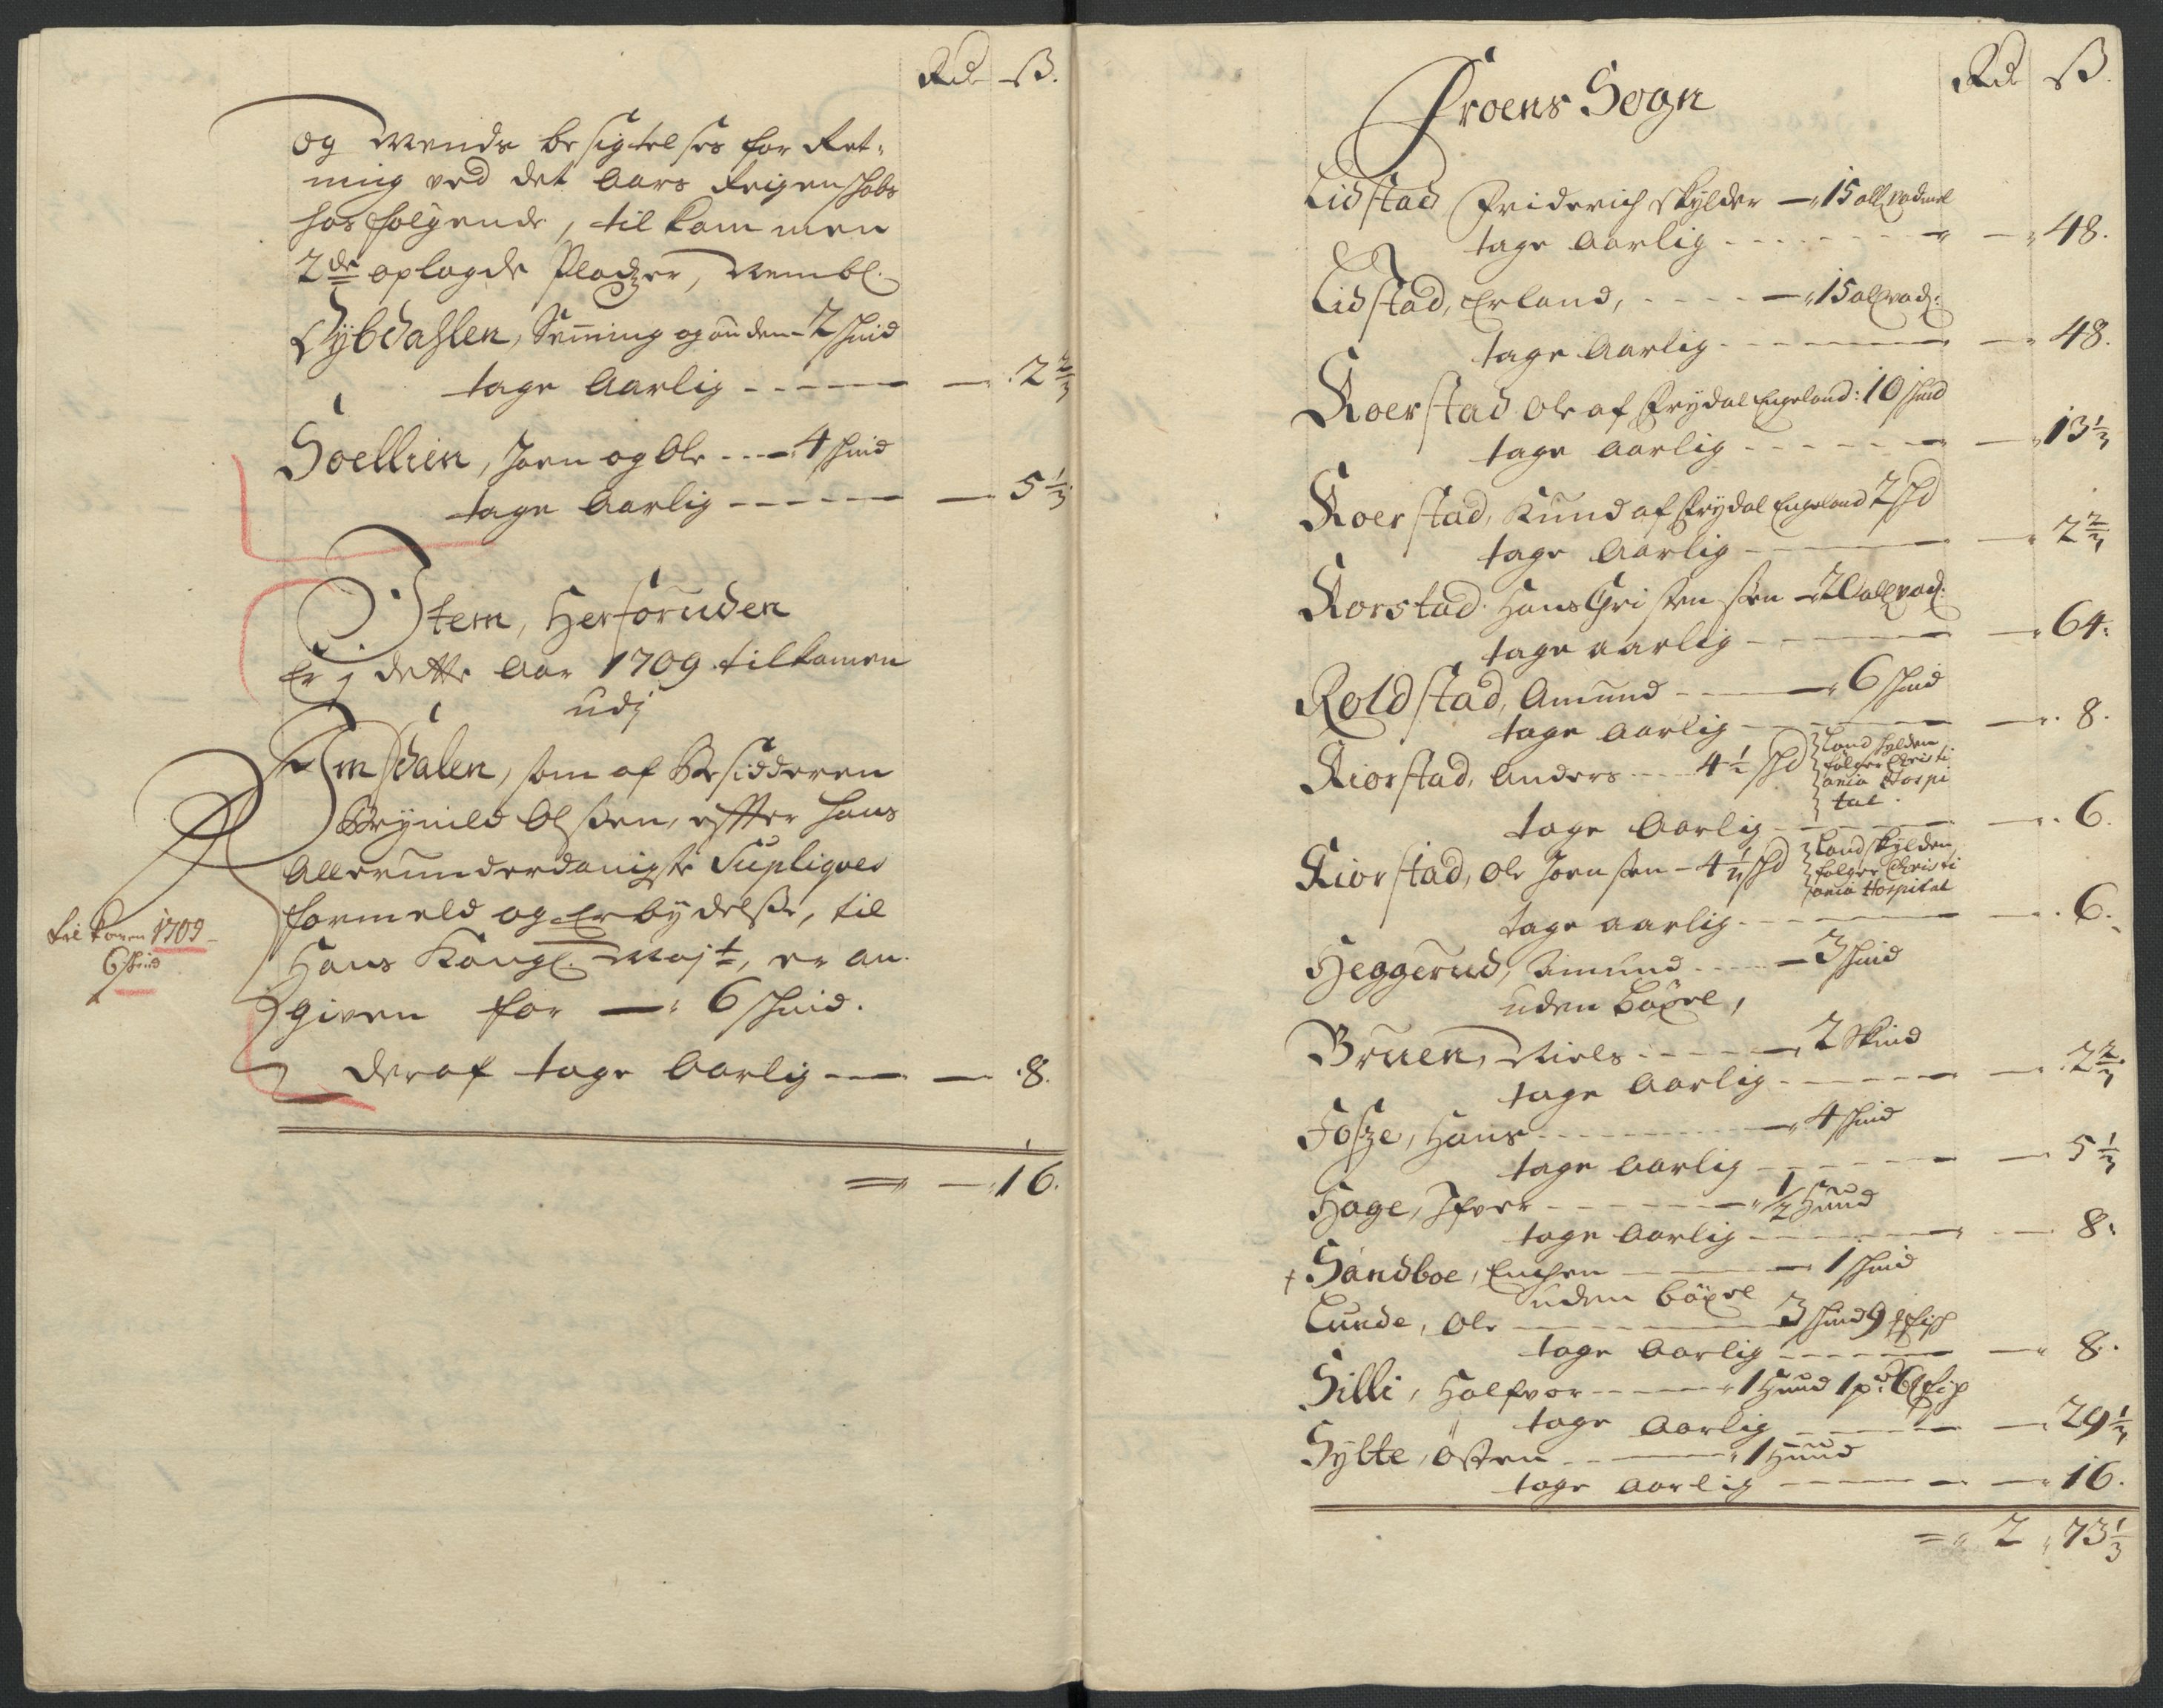 Rd ß.
og Mends besigtelses for Ret-
ning ved det Aars Reigenskabs
hosfølgende, tilkommen
2de oplagde Pladzer, Nembl.
Dybdahlen, og 2 skind
tage Aarlig - - - - - 2 2/3
Soellien, Joen og Ole - - - 4 skind
tage Aarlig - - - - - 5 1/3
Item, Herforuden
Er j dette Aar 1709 tilkomen
udj
som af Besidderen
Brynild Olßen, effter hans
Allerunderdanigste Supliqves
formeld og Erbydelße, til
Hans Kongl. Mayt, er an-
given for — 6 skind.
deraf tage Aarlig — — 8.
tilkomen 1709
6 skind
— 16.
Rd ß.
Froens Sogn
Lidstad Friderich skylder — 15 all vadmel
tage Aarlig - - - - - 48.
Lidstad, Erland, - - - - 15 all vad:
tage Aarlig - - - - - 48.
Koerstad Ole af Frydal Engeland: 10 skind
tage Aarlig - - - - - 13 1/3
Koerstad, Knud af Frydal Engeland 2 skd
tage Aarlig - - - - - 2 2/3
Korstad Hans Christensen - 20 all vad:
tage aarlig - - - - - 64.
Roldstad, Amund - - - 6 skind
tage Aarlig - - - - - 8.
Kiorstad, Anders - - - 4 1/2 skd Landskylden
følger Christi
ania Hospi
tal.
tage Aarlig - - - - - 6.
Kiorstad, Ole Joensen - 4 1/2 skd Landskylden
følger Christi
ania Hospital
tage aarlig - - - - - 6.
Heggerud, Amund - - - 3 skind
uden bøxel,
Bruen, Niels - - - - 2 Skind
tage Aarlig - - - - - 2 2/3
Foße, Hans - - - - - 4 skind
tage Aarlig - - - - - 5 1/3
Hage, Ifver - - - - - 1/2 Huud
tage Aarlig - - - - - 8.
+ Sandboe, Enchen - - - 1 skind
uden bøxel
Lunde, Ole - - - 3 skind 9 fisk
tage Aarlig - - - - - 8.
Silli, Halfvor - - - 1 Huud 1 pd 6 fisk
tage Aarlig - - - - - 29 1/3
Sylte, Østen - - - 1 Huud
tage Aarlig - - - - - 16.
2 73 1/3